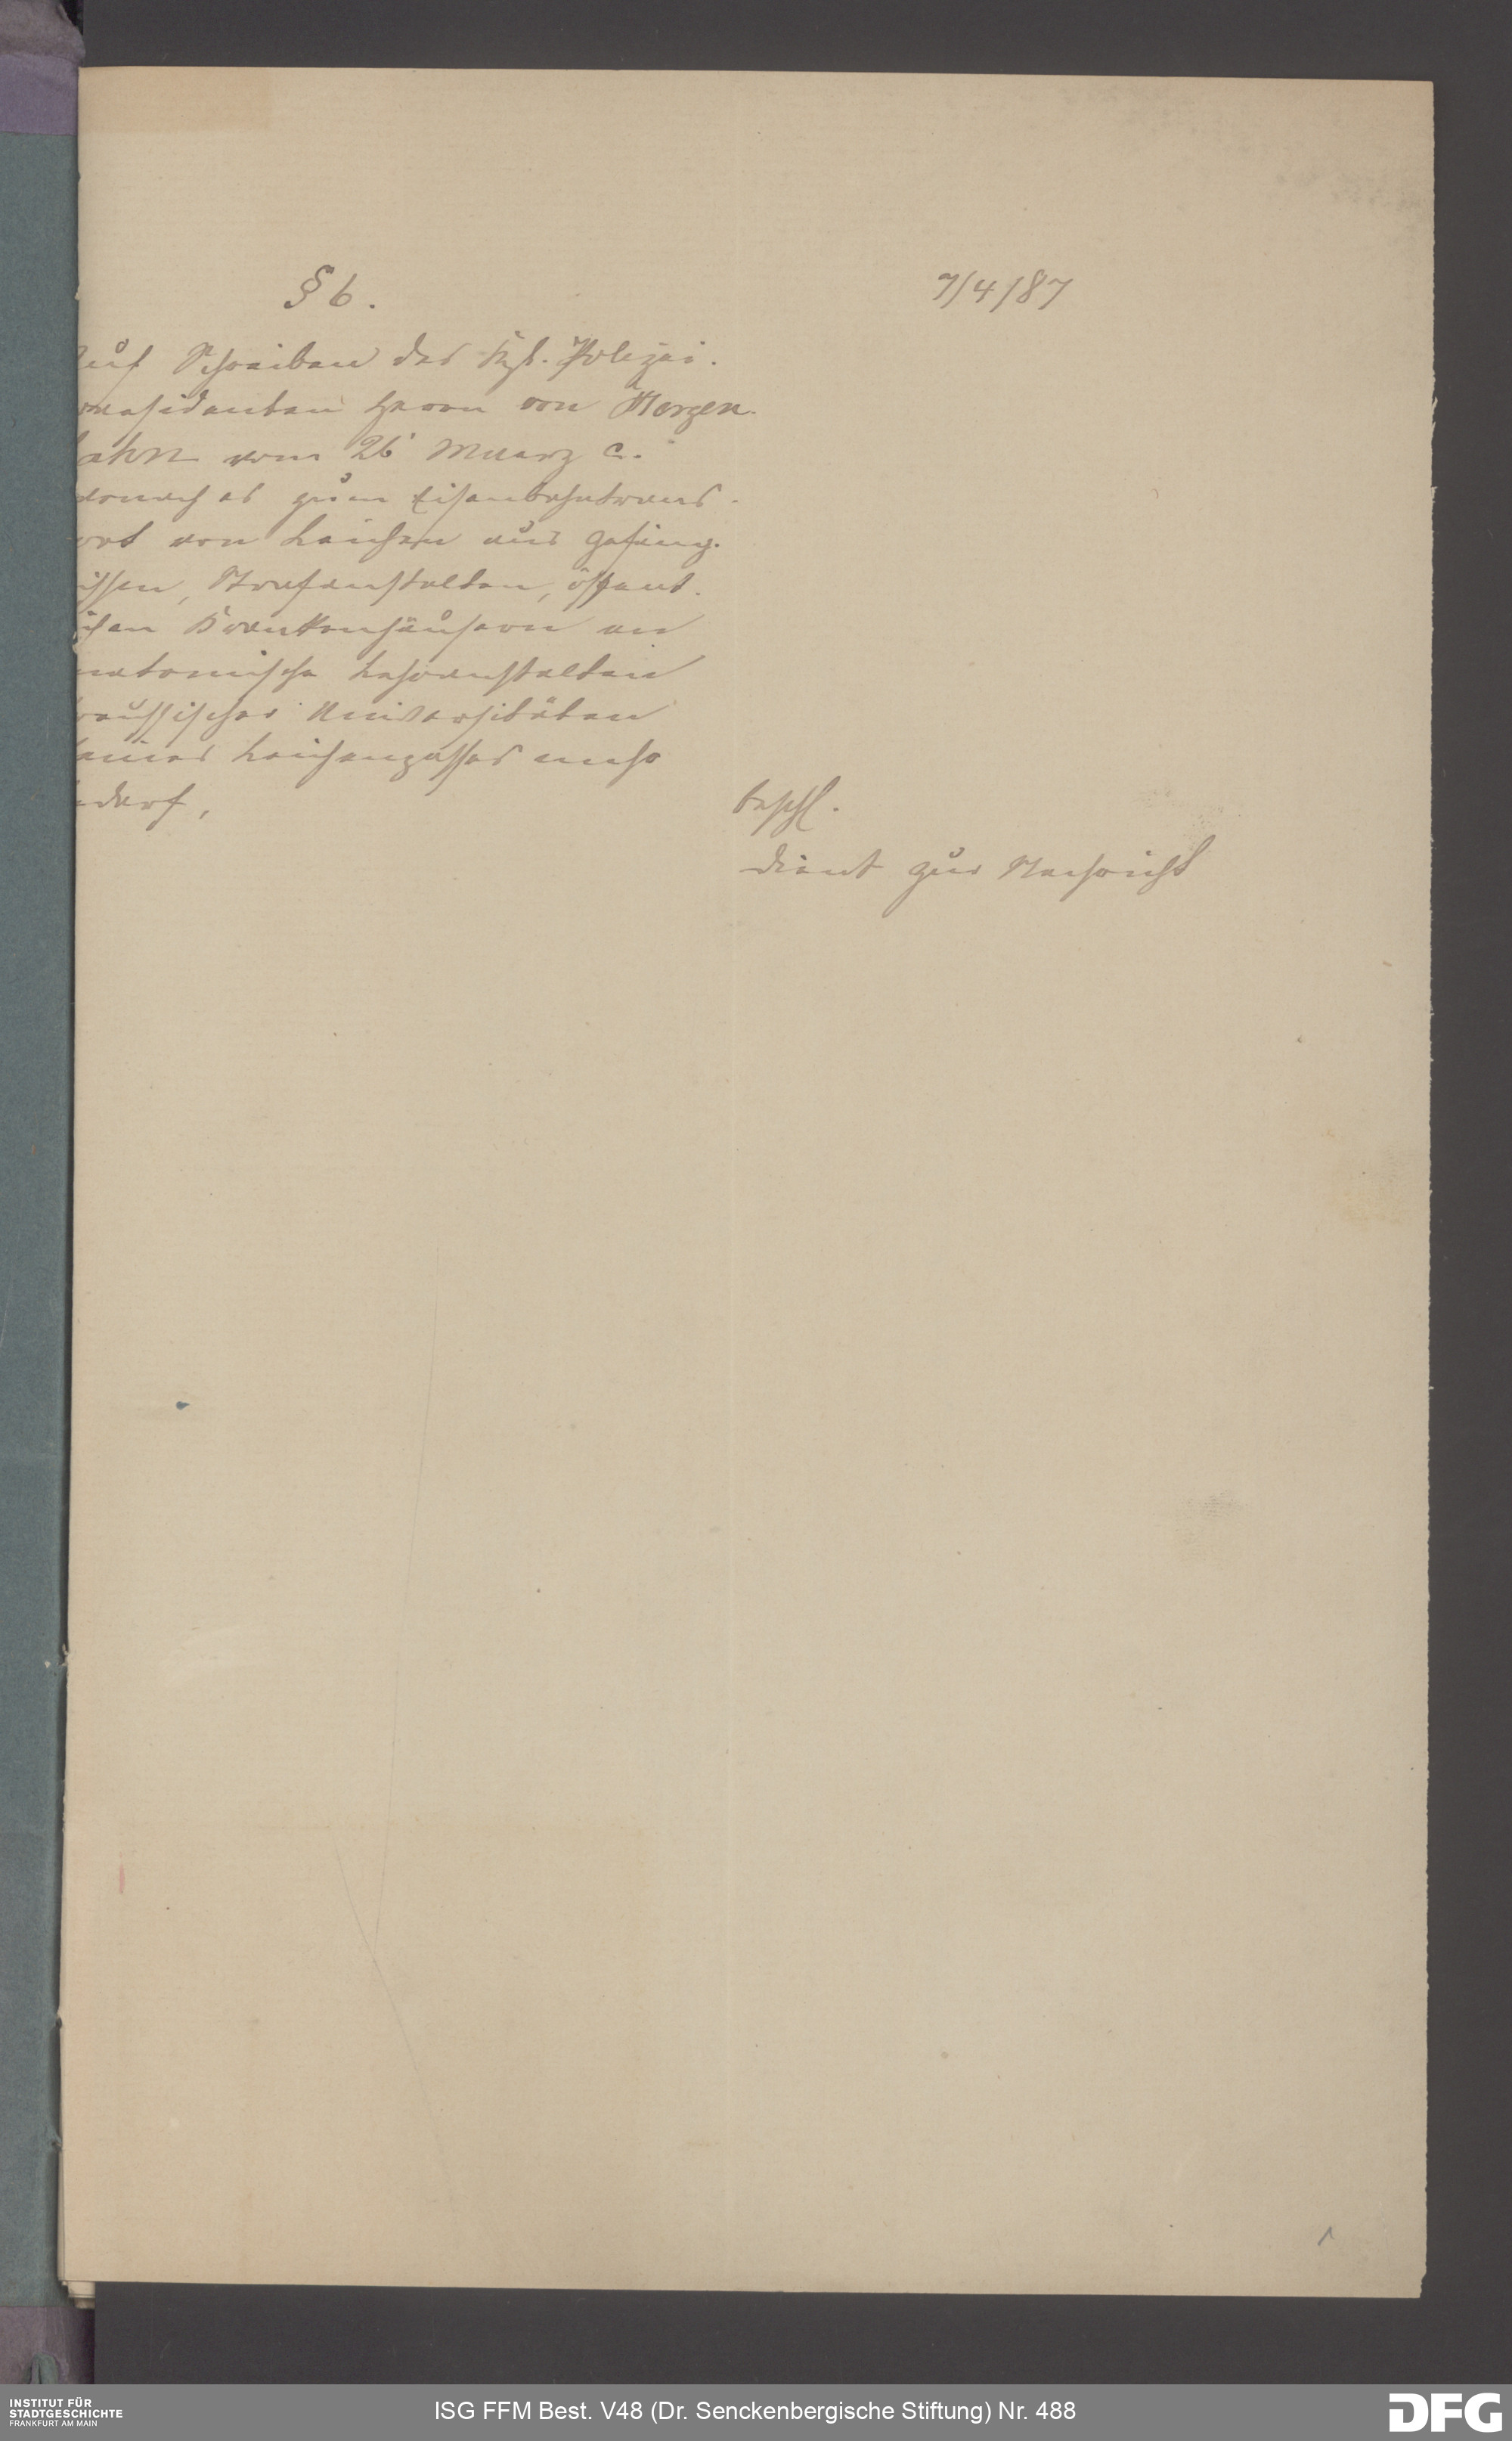 § 6.
7/4/87
Auf Schreiben des Kgl. Polizei-
praesidenten Herrn von Hergen-
hahn vom 26 Maerz c.
wonach es zum Eisenbahntrans-
port von Leichen aus Gefäng-
nissen, Strafanstalten, öffent-
lichen Krankenhäusern an
anatomische Lehranstalten
preussischer Universitäten
keines Leichenpasses mehr
bedarf,
beschl.
dient zur Nachricht
1
INSTITUT FÜR
STADTGESCHICHTE
FRANKFURT AM MAIN
ISG FFM Best. V48 (Dr. Senckenbergische Stiftung) Nr. 488
DFG